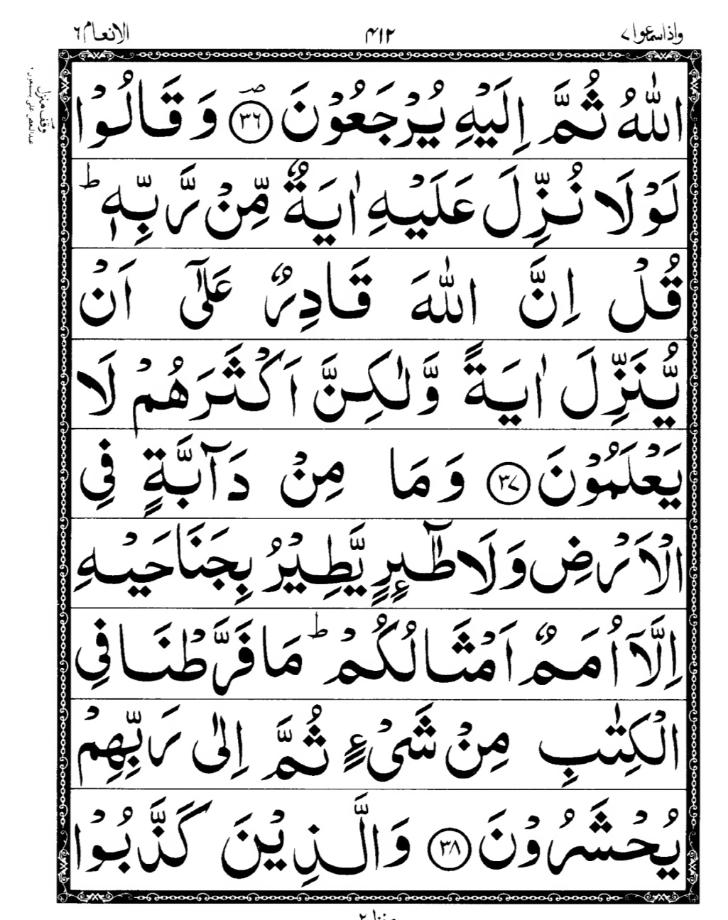 واذاسمعوا۷ ۴۱۲ الانعام۶
اللّٰهُ ثُمَّ اِلَيْهِ يُرْجَعُوْنَ ﴿۳۶﴾ؔ وَ قَالُوْا
لَوْلَا نُزِّلَ عَلَيْهِ اٰيَةٌ مِّنْ رَّبِّهٖ ؕ
قُلْ اِنَّ اللّٰهَ قَادِرٌ عَلٰٓى اَنْ
يُّنَزِّلَ اٰيَةً وَّلٰكِنَّ اَكْثَرَهُمْ لَا
يَعْلَمُوْنَ ﴿۳۷﴾ وَ مَا مِنْ دَآبَّةٍ فِي
الْاَرْضِ وَلَا طٰٓئِرٍ يَّطِيْرُ بِجَنَاحَيْهِ
اِلَّاۤ اُمَمٌ اَمْثَالُكُمْ ؕ مَا فَرَّطْنَا فِي
الْكِتٰبِ مِنْ شَيْءٍ ثُمَّ اِلٰى رَبِّهِمْ
يُحْشَرُوْنَ ﴿۳۸﴾ وَالَّذِيْنَ كَذَّبُوْا
وقف منزل
منزل ۲